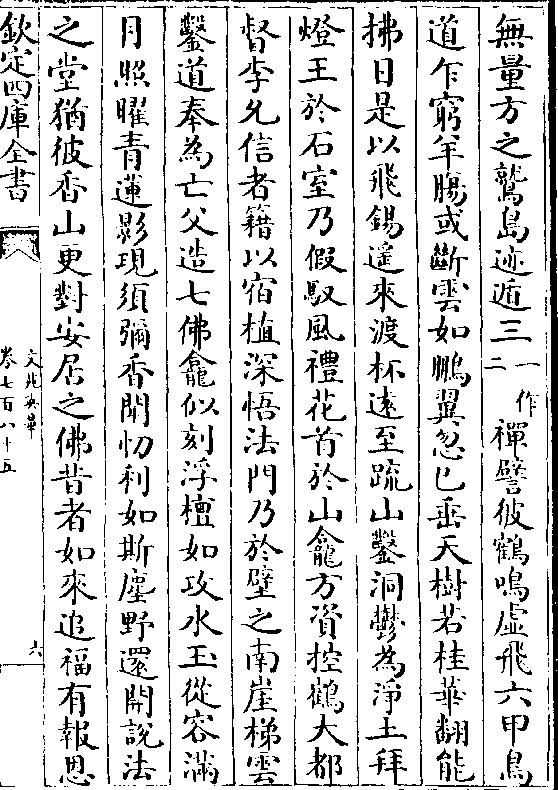 無量方之鷲島迹遁三一作二禪譬彼鶴鳴虛飛六甲鳥
道乍窮羊腸或斷雲如鵬翼忽已垂天樹若桂華翻能
拂日是以飛錫遥來渡杯遠至疏山鑿洞鬱為淨土拜
燈王於石室乃假馭風禮花首於山龕方資控鶴大都
督李允信者籍以宿植深悟法門乃於壁之南崖梯雲
鑿道奉為亡父造七佛龕似刻浮檀如攻水玉從容滿
月照曜青蓮影現須彌香聞忉利如斯塵野還開說法
之堂猶彼香山更對安居之佛昔者如來追福有報恩
欽定四庫全書
文苑英華
卷七百八十五
六